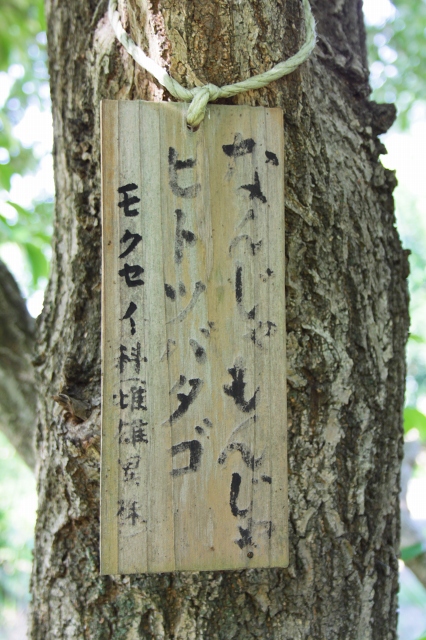 なんじゃもんじゃ
ヒトツバタゴ
モクセイ科雌雄異株